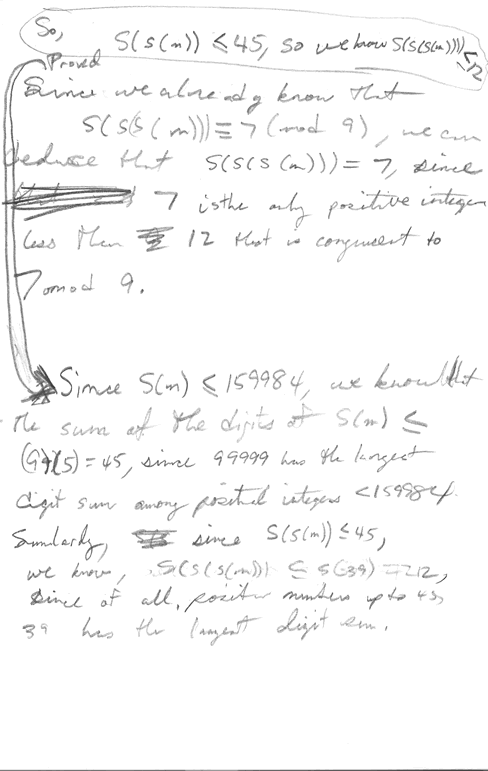 So,
S(S(m)) ≤ 45, so we know S(S(S(m))) ≤ 12
Proved
Since we already know that
S(S(S(m))) ≡ 7 (mod 9), we can
deduce that S(S(S(m))) = 7, since
7 is the only positive integer
less than 12 that is congruent to
7 mod 9.
Since S(m) ≤ 159984, we know that
the sum of the digits of S(m) ≤
(9)(5) = 45, since 99999 has the largest
digit sum among positive integers < 159984.
Similarly, since S(S(m)) ≤ 45,
we know, S(S(S(m))) ≤ S(39) = 12,
since of all positive numbers up to 45,
39 has the largest digit sum.